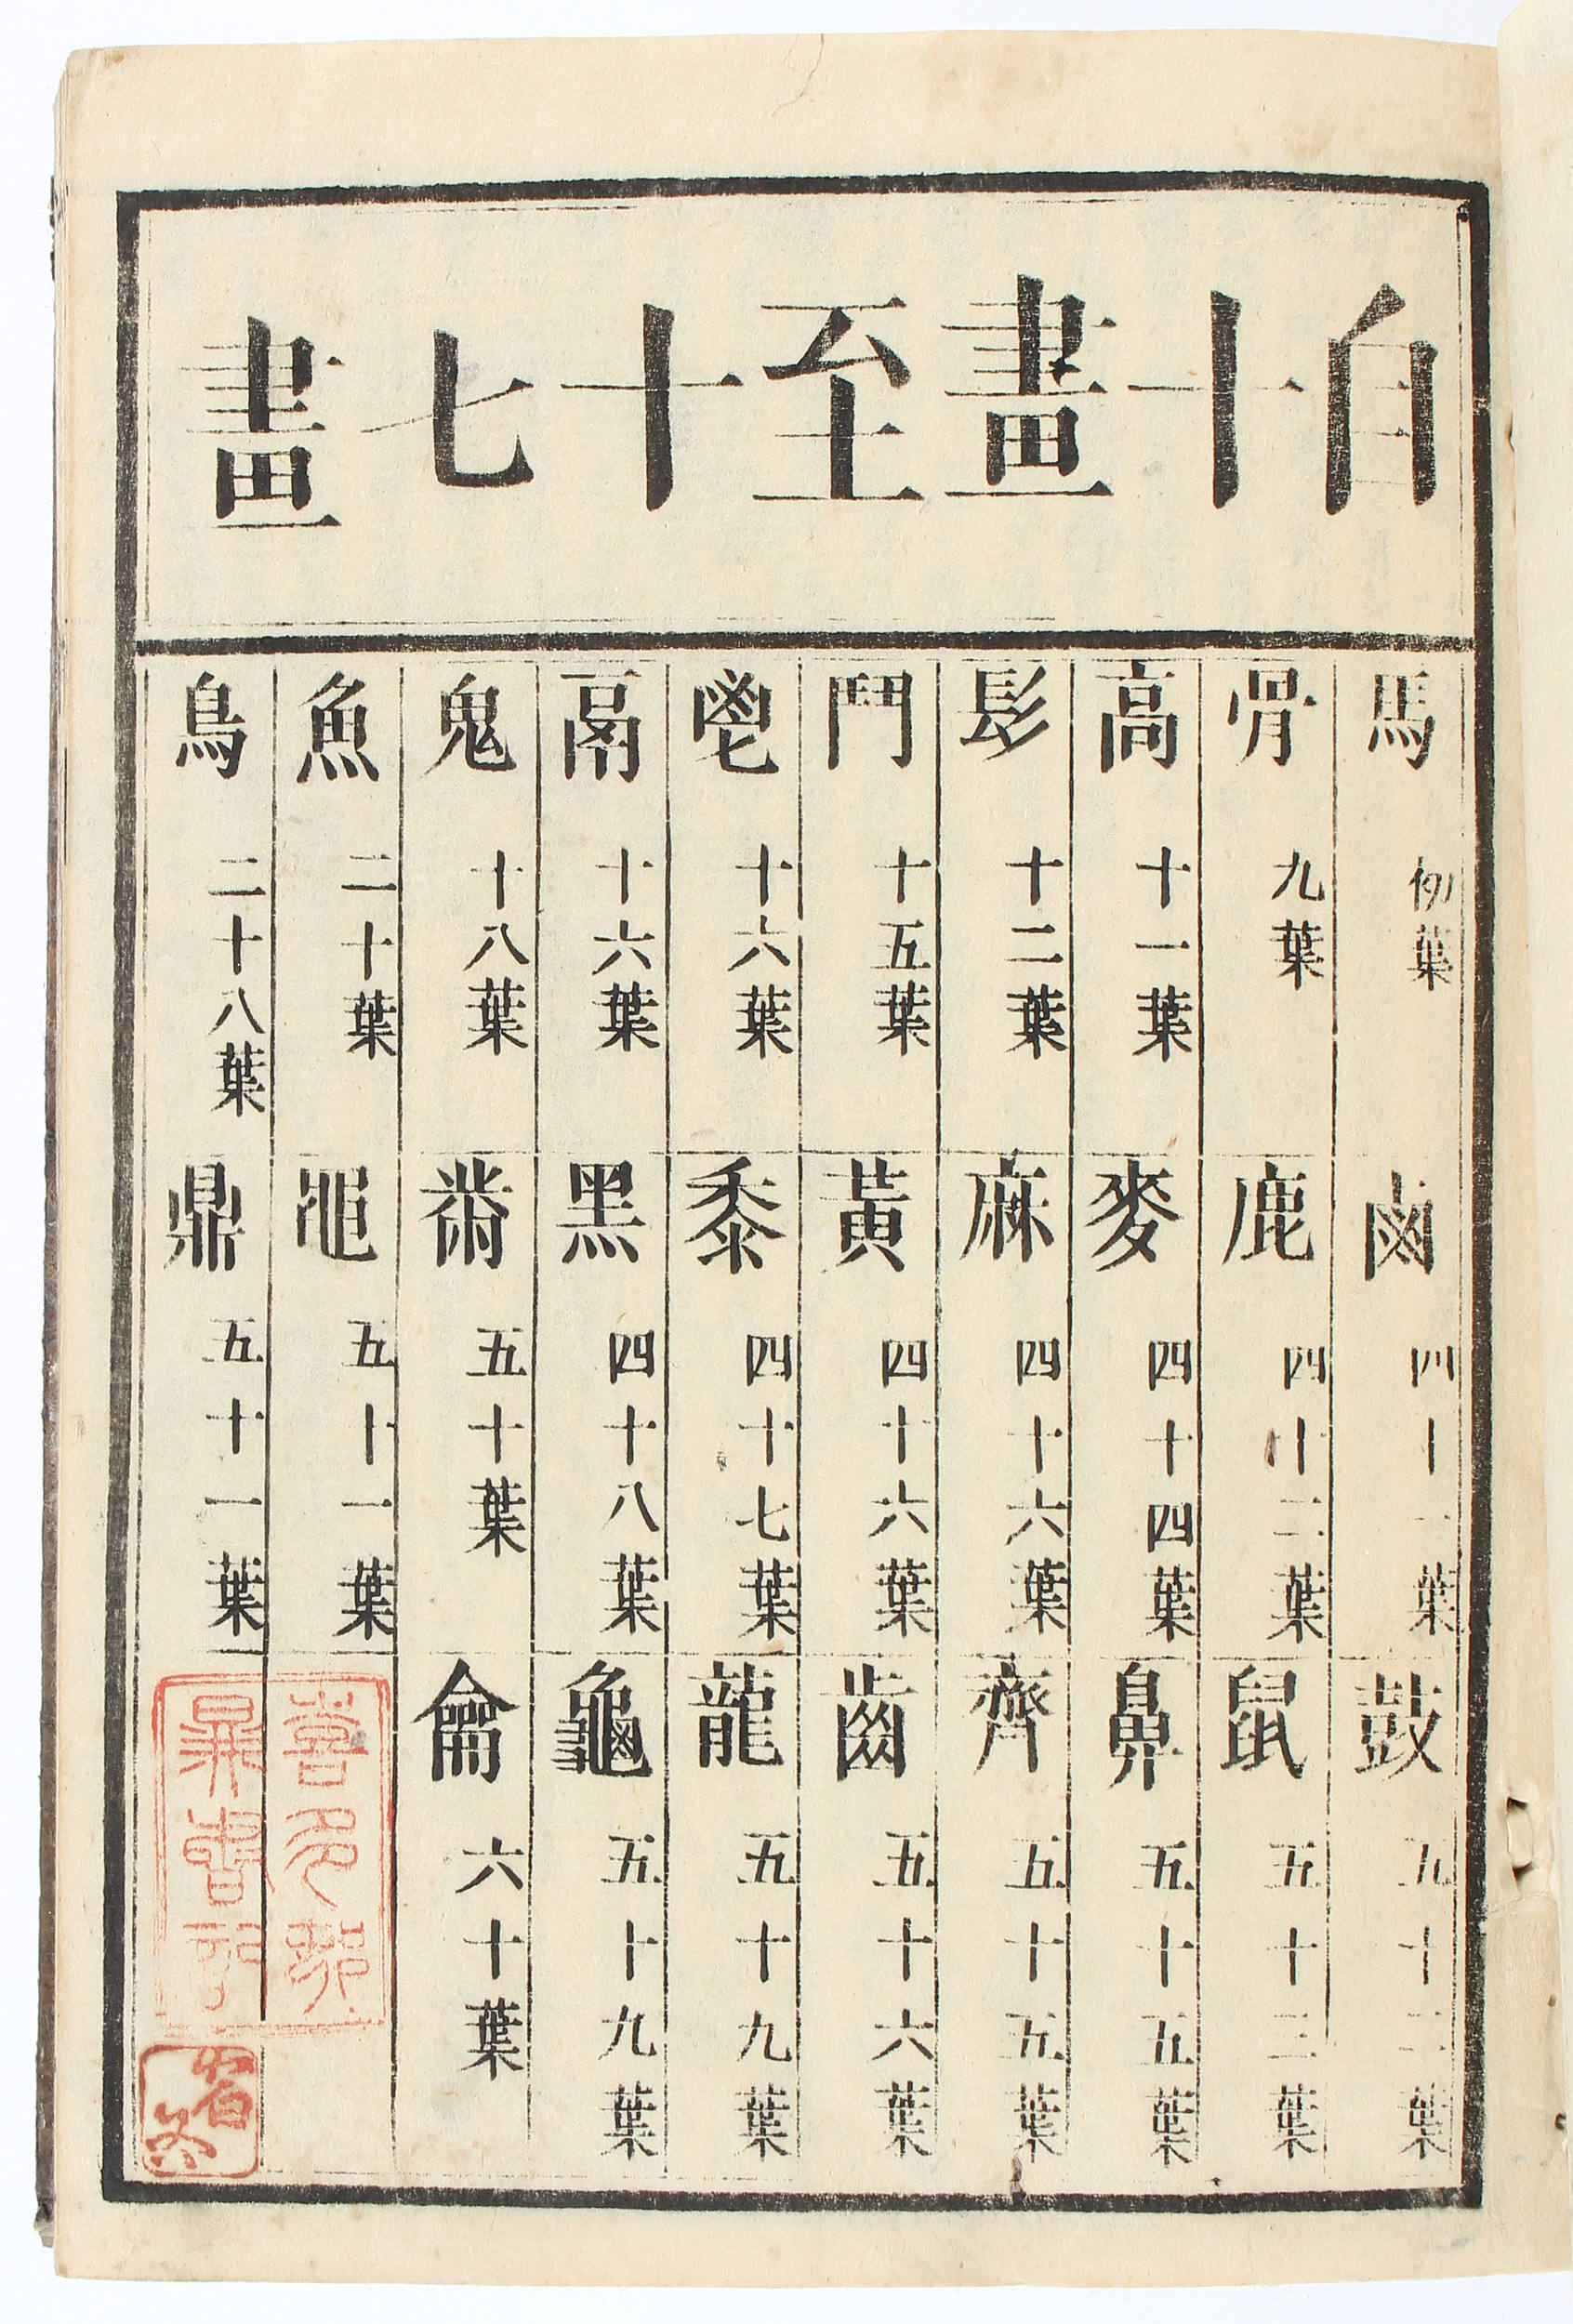 自十畫至十七畫
馬 初葉
骨 九葉
高 十一葉
髟 十二葉
鬥 十五葉
鬯 十六葉
鬲 十六葉
鬼 十八葉
魚 二十葉
鳥 二十八葉
鹵 四十一葉
鹿 四十二葉
麥 四十四葉
麻 四十六葉
黃 四十六葉
黍 四十七葉
黑 四十八葉
黹 五十葉
黽 五十一葉
鼎 五十一葉
鼓 五十二葉
鼠 五十三葉
鼻 五十五葉
齊 五十五葉
齒 五十六葉
龍 五十九葉
龜 五十九葉
龠 六十葉
喜多邨